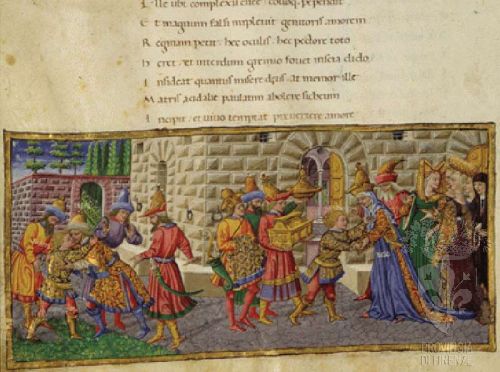 Ille ubi complexu enee. colloq; pependit
Et magnum falsi impleuit genitoris amorem
Reginam petit. hec oculis. hec pectore toto
Heret. et interdum gremio fouet inscia dido
Insideat quantus misere deus. at memor ille
Matris acidalie paulatim abolere sicheum
Incipit. et uiuo temptat preuertere amore
PROVINCIA
DI FIRENZE